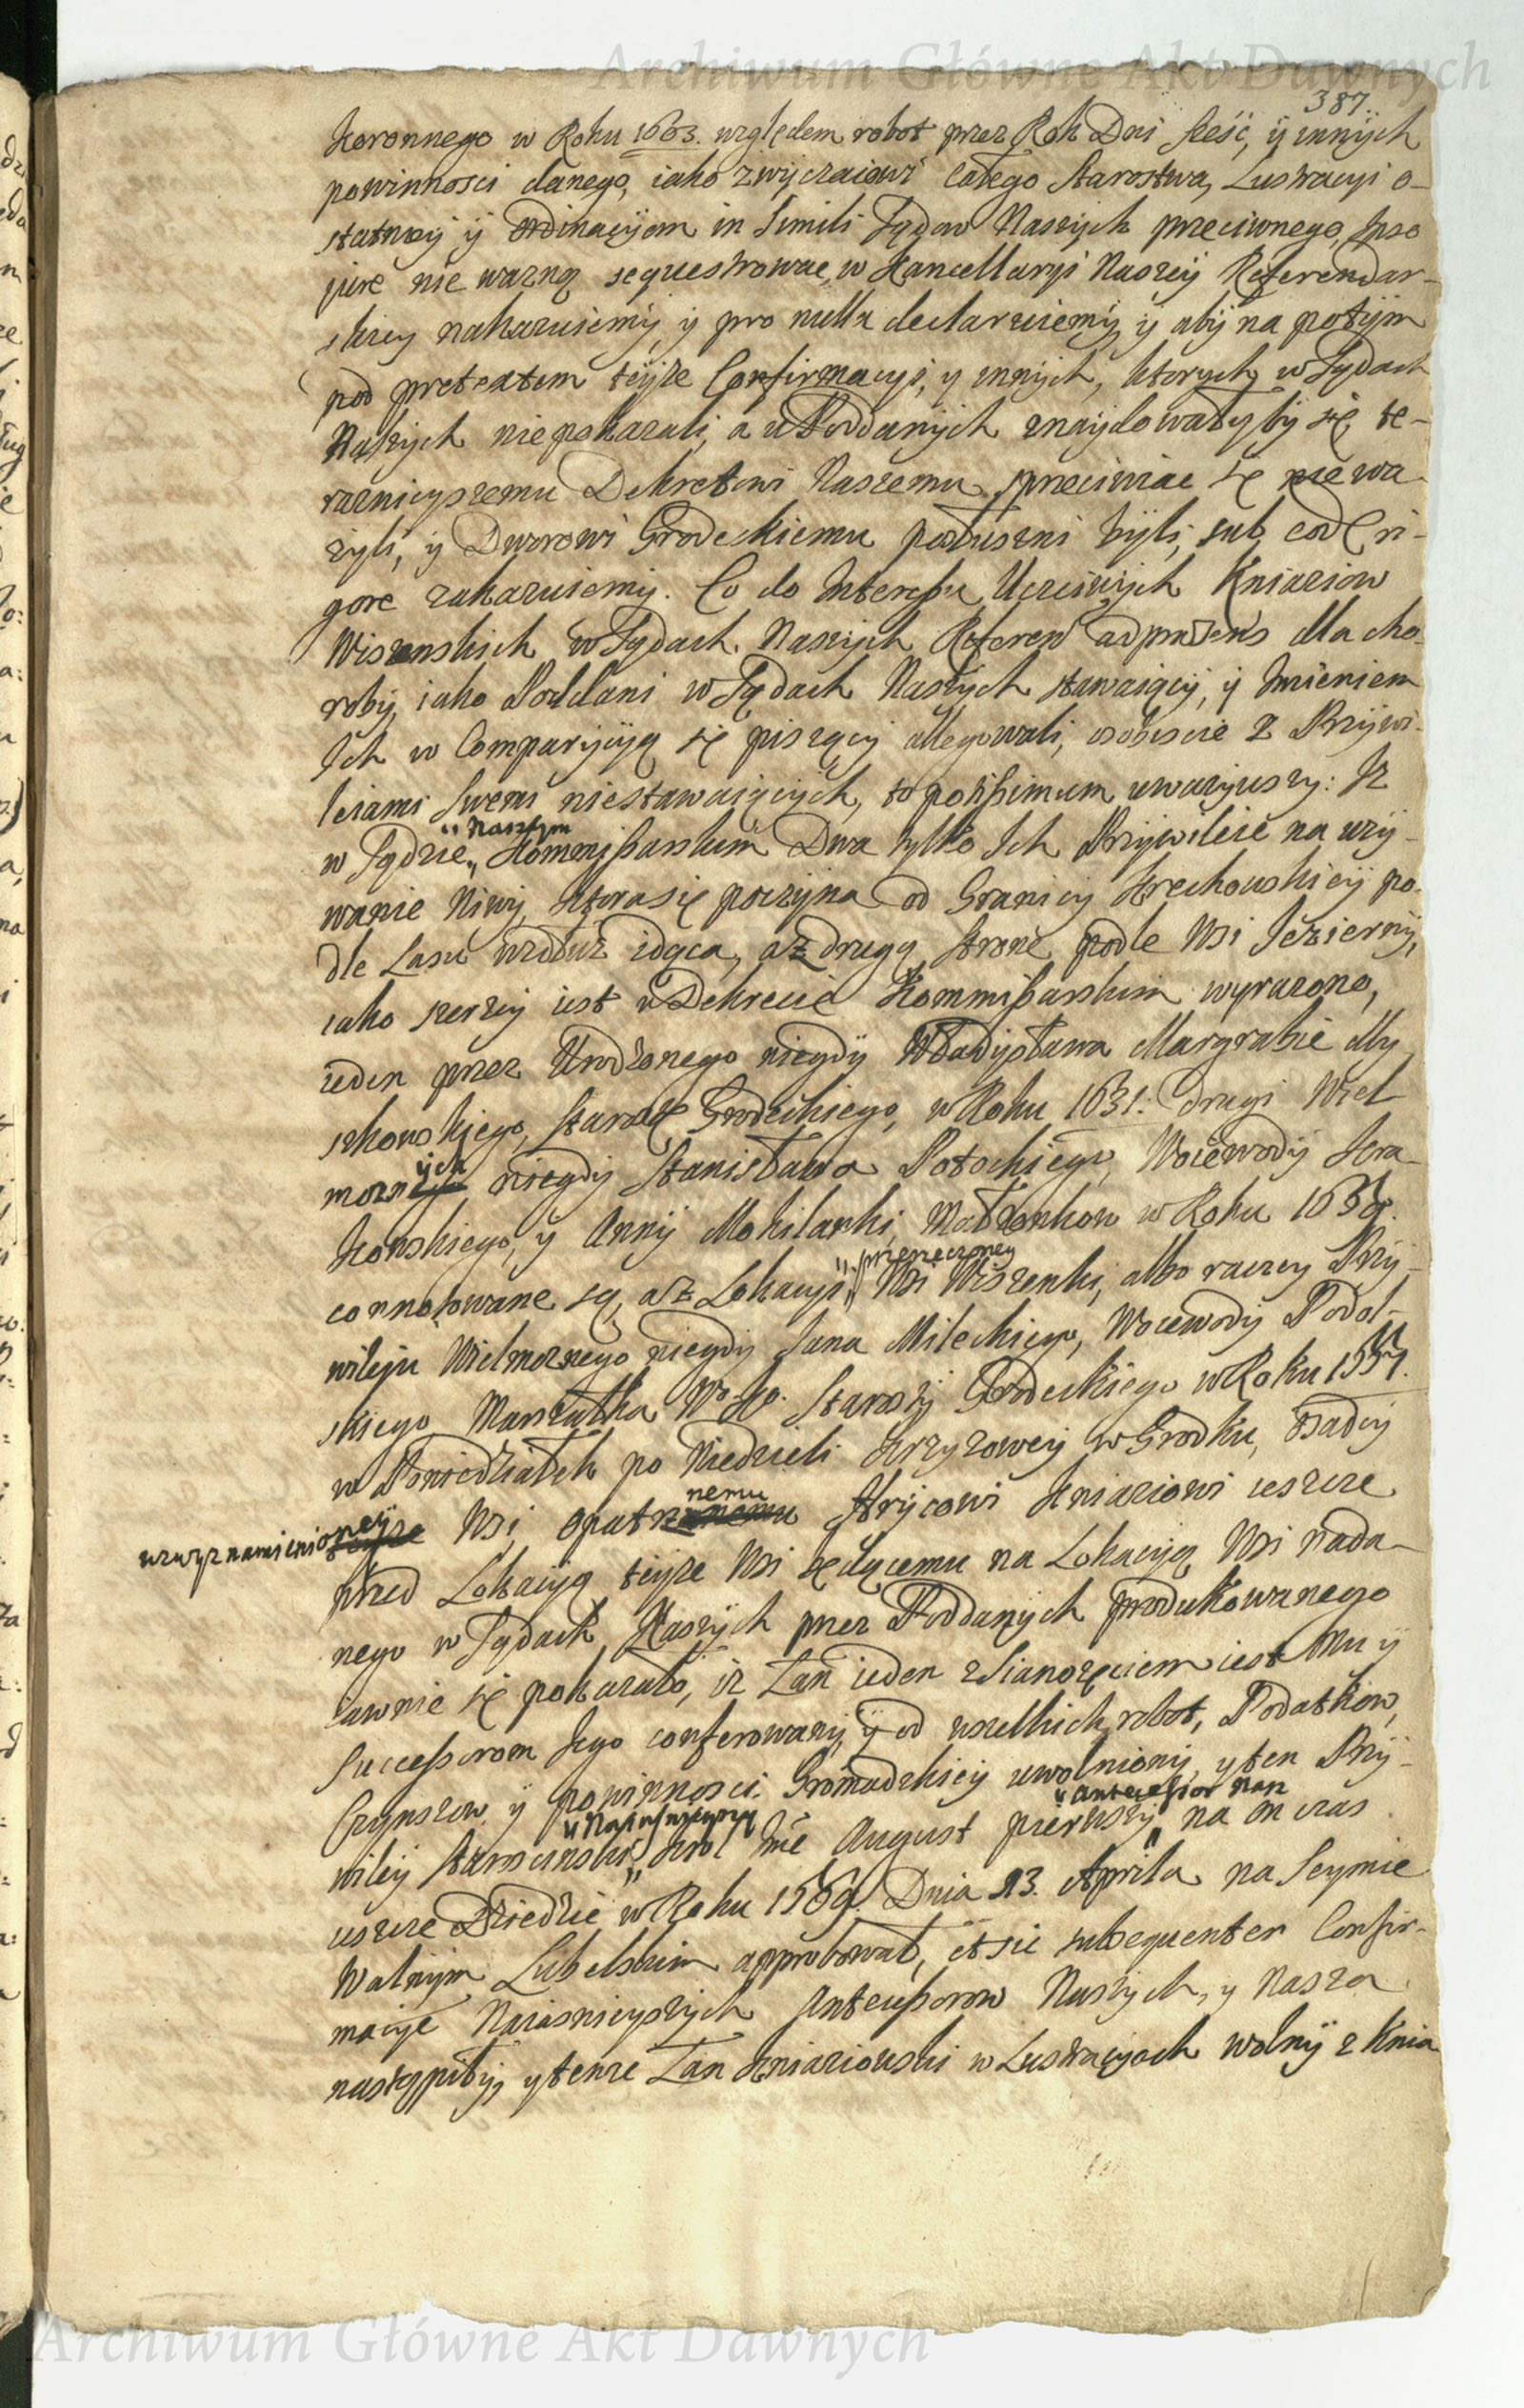 Archiwum Główne Akt Dawnych
387.
Koronnego w Roku 1663. względem robot przez Rok Dni sześć, ÿ innÿch
powinnosci danego, iako zwÿczaiowi całego Starostwa, Lustracyi o-
statniey ÿ ordinacÿom in Simili Sądow Naszÿch przeciwnego, Ipso
jure nie wazną sequestrowac, w Kancellaryi Naszeÿ Referendar-
skiey nakazuiemÿ, ÿ pro nulla declaruiemÿ, ÿ abÿ na potÿm
pod pretextem teÿże Confirmacyi, y innÿch, ktorych w Sądach
Naszÿch niepokazali, a u Poddanÿch znaÿdowałyby się, te-
raznieyszemu Dekretowi Naszemu sprzeciwiac się nie wa-
zyli, ÿ Dworowi Grodeckiemu posłuszni bÿli, sub eod ri-
gore zakazuiemÿ. Co do Interessu Uczciwÿch Kniaziow
Wiszenskich w Sądach Naszÿch Referen ad præsens dla cho-
robÿ, iako Poddani w Sądach Naszÿch stawaiącÿ, ÿ Imieniem
Ich w Comparycÿą się piszącÿ allegowali, osobiscie z Przÿwi-
leiami Swemi niestawaiącÿch, to potissimum uwazÿwszy: Iz
w Sądzie „ Naszym Kommissarskim Dwa tylko Ich Przÿwileie na uzÿ-
wanie Niwÿ, ktora się poczÿna od Granicy Strechowskieÿ po-
dle Lasu wzdłuz idąca, az drugą stronę podle Wsi Jeziernÿ,
iako szerzeÿ iest w Dekrecie Kommissarskim wyrazono,
ieden przez Urodzonego niegdÿ Władÿsława Margrabie My-
szkowskiego, Starostę Grodeckiego, w Roku 1631. drugi Wiel-
moznÿch niegdÿ Stanisława Potockiego, Woiewodÿ Kra-
kowskiego, ÿ Annÿ Mohilanki, Małżonkow w Roku
connotowane są, a z Lokacyi „ przerzeczoney Wsi Wiszenki, albo raczeÿ Przÿ-
wileju Wielmoznego niegdÿ Jana Mileckiego, Woiewodÿ Podol-
skiego, Marszałka Starostÿ Grodeckiego w Roku
w Poniedziałek po Niedzieli Krzyzoweÿ w Grodku, Osadcÿ
wzwyz namienioneÿ Wsi, opatrznemu Hrÿcowi Kniaziowi ieszcze
przed Lokacÿą teÿże Wsi będącemu na Lokacÿą Wsi nada-
nego w Sądach Naszÿch przez Poddanÿch produkowanego
iawnie się pokazało, iz Łan ieden z Sianozęciem iest Mu ÿ
Successorom Jego conferowanÿ, ÿ od wszelkich robot, Podatkow,
Czynszow ÿ powinnosci Gromadzkieÿ uwolnionÿ, y ten Przÿ-
wileÿ Starościnski „ Nayjasnieyszy Krol Imć August pierwszÿ „ Antecessor Nasz na on czas
ieszcze Dziedzic w Roku 1569. Dnia 13. Aprila na Seymie
Walnÿm Lubelskim approbował, et sic subsequenter Confir-
macÿe Naiasnieyszÿch Antecessorow Naszÿch, y Nasza
nastąpiłÿ, y tenze Łan Kniaziowski w Lustracÿach wolnÿ z Knia
Archiwum Główne Akt Dawnych